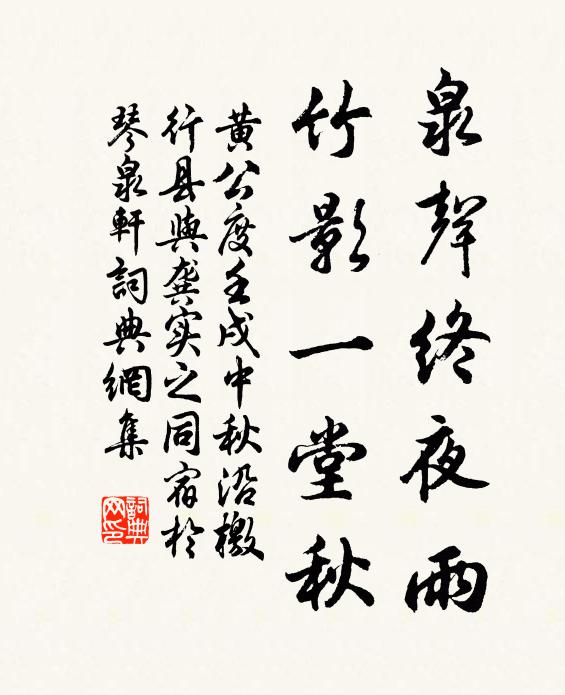 泉聲終夜雨
竹影一堂秋
黄公度壬戌中秋沿檄
行县與龚实之同宿於
琴泉軒詞典網集
詞典
网印